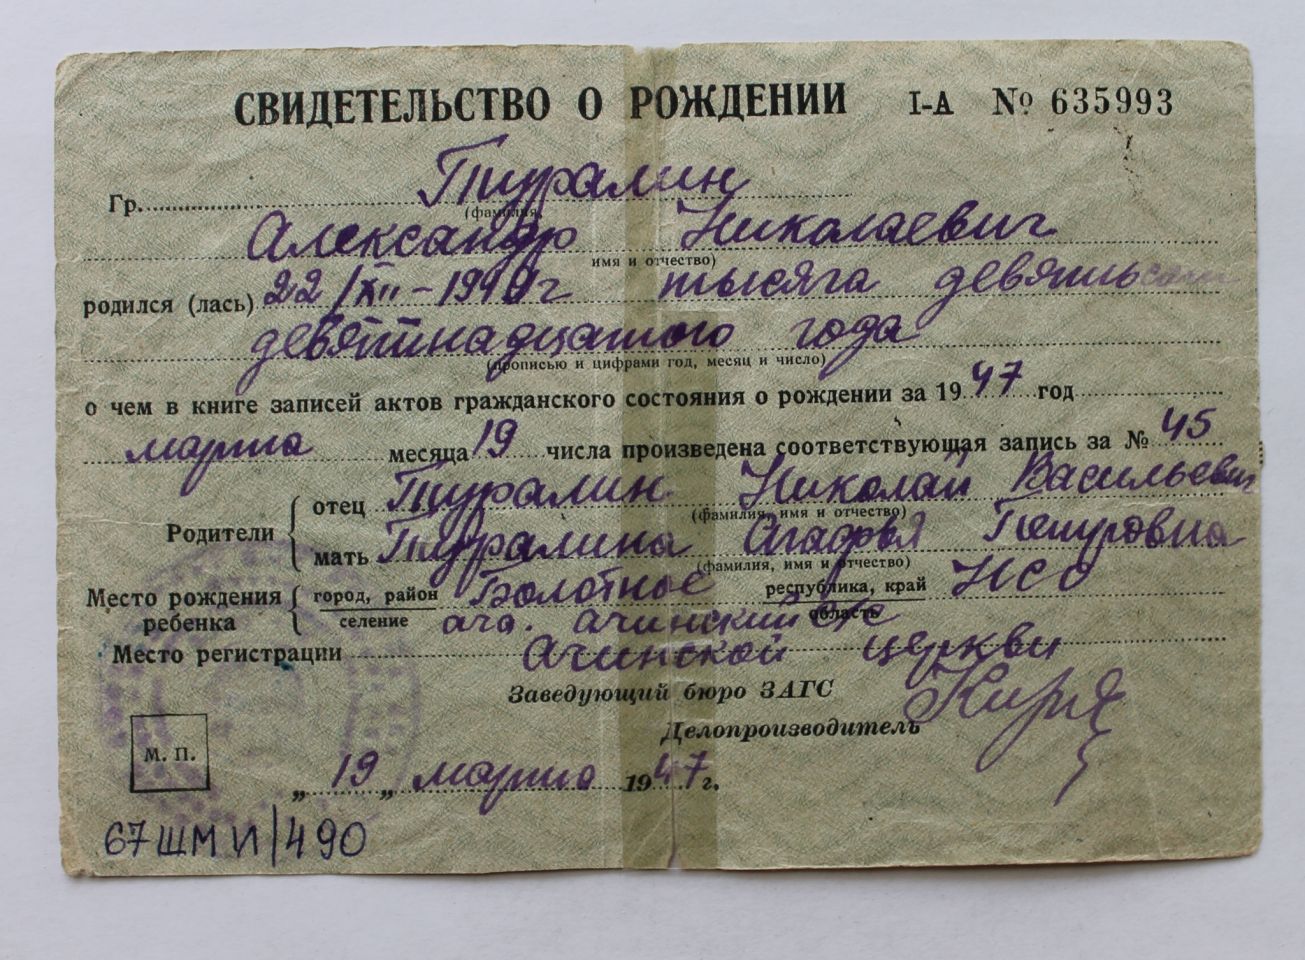 СВИДЕТЕЛЬСТВО О РОЖДЕНИИ I-А № 635993
Гр. Туралин
(фамилия)
Александр Николаевич
имя и отчество)
родился (лась) 22/XII-1919г тысяча девятьсот
девятнадцатого года
(прописью и цифрами год, месяц и число)
о чем в книге записей актов гражданского состояния о рождении за 1947 год
марта месяца 19 числа произведена соответствующая запись за № 45
Родители отец Туралин Николай Васильевич
(фамилия, имя и отчество)
мать Туралина Агафья Петровна
(фамилия, имя и отчество)
Место рождения ребенка город, район Болотное республика, край НСО
селение ача. ачинский с/с область
Место регистрации Ачинской церкви
Заведующий бюро ЗАГС
Делопроизводитель
М. П.
„19„ марта 1947г.
67ШМИ/490